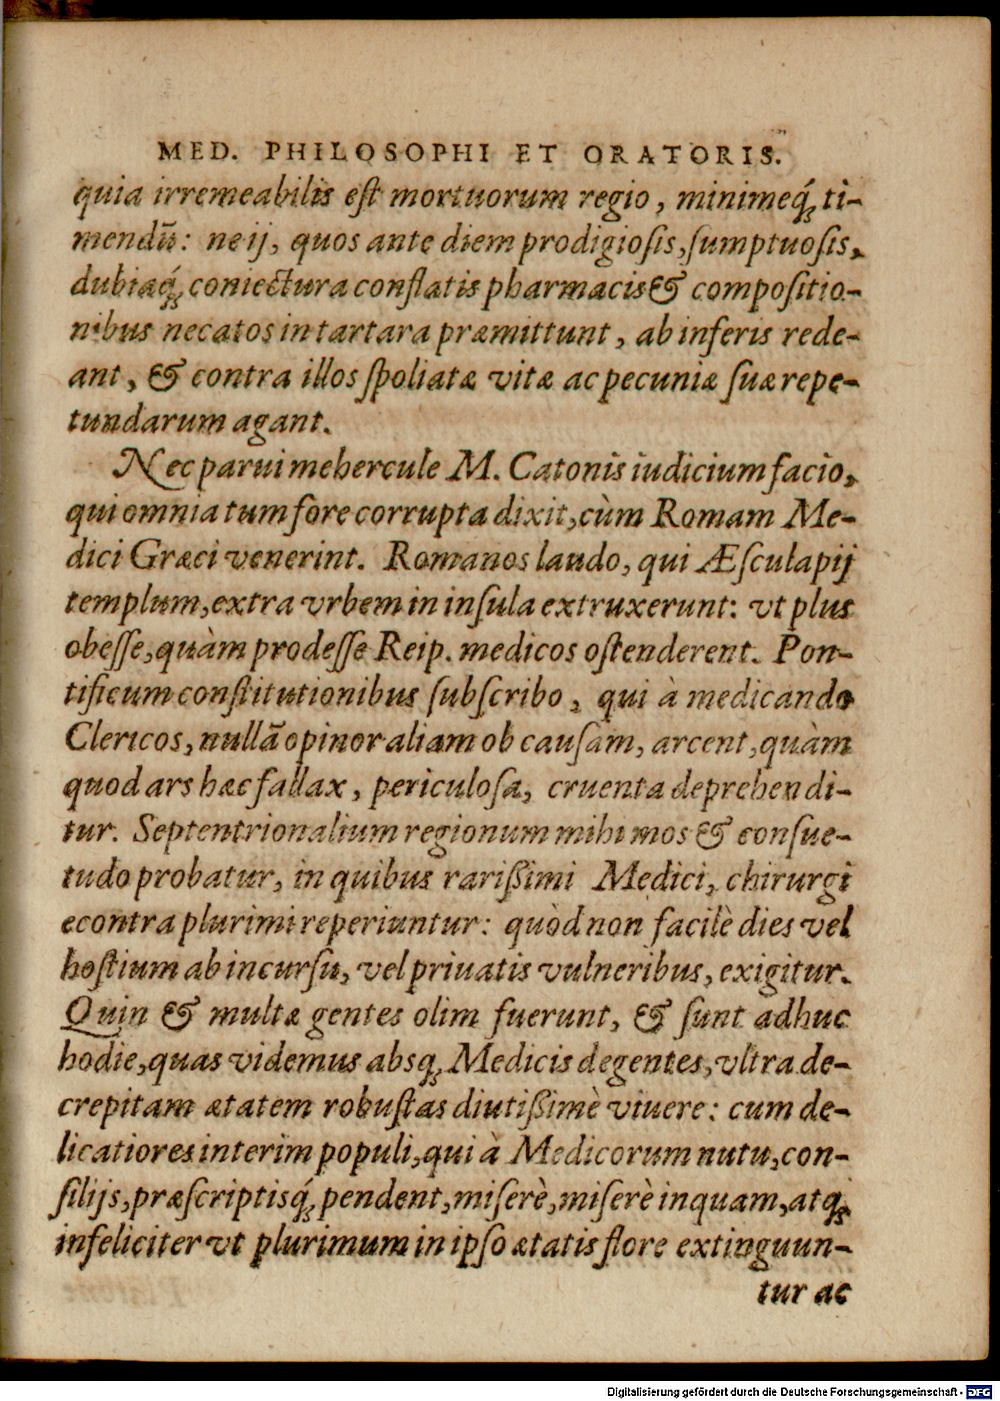 MED. PHILOSOPHI ET ORATORIS.
quia irremeabilis eſt mortuorum regio, minimeq́ꝫ ti-
mendū: ne ij, quos ante diem prodigioſis, ſumptuoſis,
dubiaq́ꝫ coniectura conflatis pharmacis & compoſitio-
nibus necatos in tartara præmittunt, ab inferis rede-
ant, & contra illos ſpoliatæ vitæ ac pecuniæ ſuæ repe-
tundarum agant.
Nec parui mehercule M. Catonis iudicium facio,
qui omnia tum fore corrupta dixit, cùm Romam Me-
dici Græci venerint. Romanos laudo, qui Æſculapij
templum, extra vrbem in inſula extruxerunt: vt plus
obeſſe, quàm prodeſſe Reip. medicos oſtenderent. Pon-
tificum conſtitutionibus ſubſcribo, qui à medicando
Clericos, nullā opinor aliam ob cauſam, arcent, quàm
quod ars hæc fallax, periculoſa, cruenta deprehendi-
tur. Septentrionalium regionum mihi mos & conſue-
tudo probatur, in quibus rarißimi Medici, chirurgi
econtra plurimi reperiuntur: quòd non facilè dies vel
hoſtium ab incurſu, vel priuatis vulneribus, exigitur.
Quin & multæ gentes olim fuerunt, & ſunt adhuc
hodie, quas videmus absqꝫ Medicis degentes, vltra de-
crepitam ætatem robuſtas diutißimè viuere: cum de-
licatiores interim populi, qui à Medicorum nutu, con-
ſilijs, præſcriptisq́ꝫ pendent, miſerè, miſerè inquam, atqꝫ
infeliciter vt plurimum in ipſo ætatis flore extinguun-
tur ac
Digitalisierung gefördert durch die Deutsche Forschungsgemeinschaft - DFG